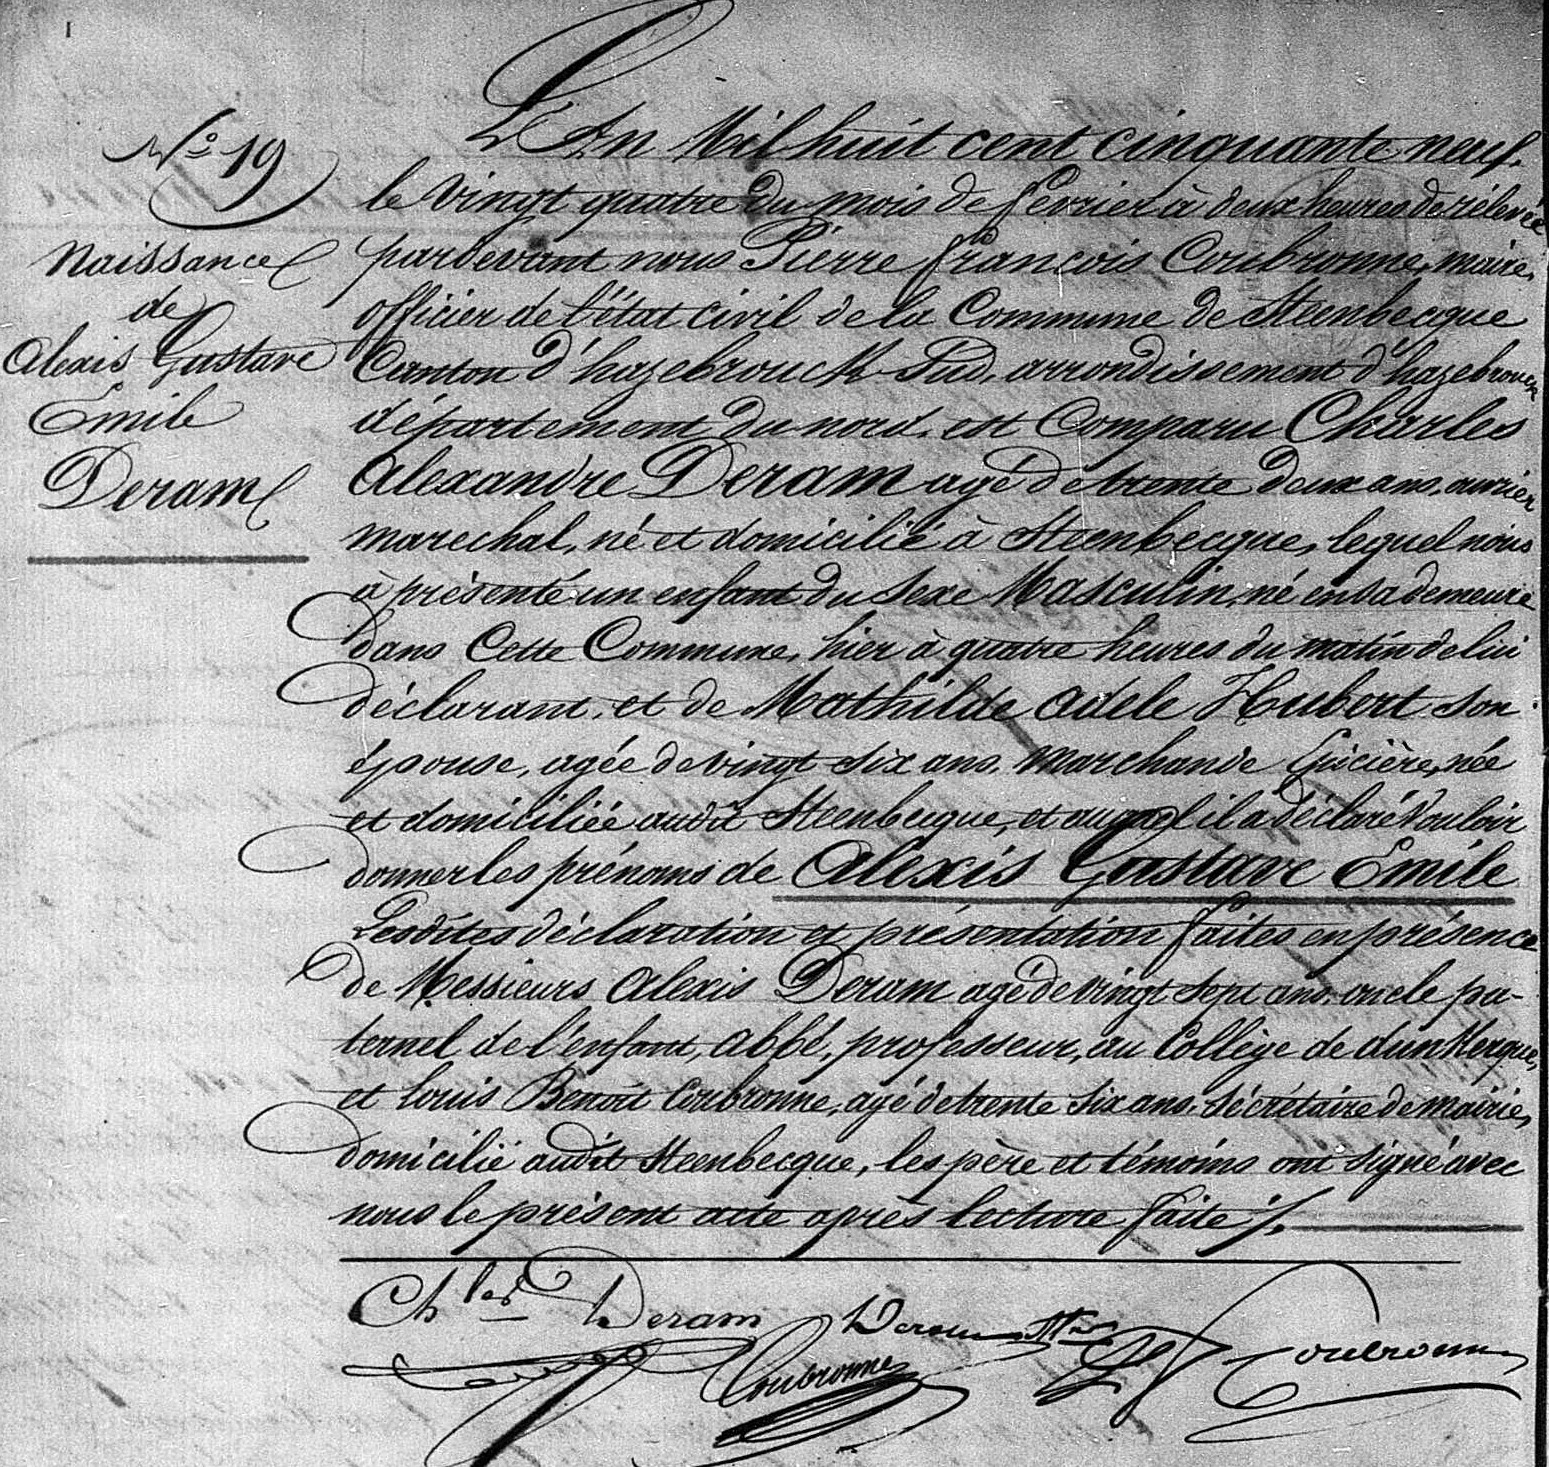 N.o 19
Naissance
de
Alexis Gustave
Emile
Deram
L'An Mil huit cent cinquante neuf.
le vingt quatre du mois de fevrier à deux heures de rélevée
pardevant nous Pierre françois Coubronne, maire,
officier de l'état civil de la Commune de Steenbecque
Canton d'hazebrouck Sud, arrondissement d'hazebrouck
département du nord, est Comparu Charles
Alexandre Deram agé de trente deux ans, ouvrier
marechal, né et domicilié à Steenbecque, lequel nous
à présenté un enfant du sexe Masculin, né en sa demeure
dans Cette Commune, hier à quatre heures du matin de lui
déclarant, et de Mathilde Adele Hubert son
épouse, agée de vingt six ans, Marchande Epicière, née
et domiciliée audit Steenbecque, et auquel il a déclaré vouloir
donner les prénoms de Alexis Gustave Emile
Lesdites déclaration et présentation faites en présence
de Messieurs Alexis Deram agé de vingt sept ans, oncle pa-
ternel de l'enfant, abbé, professeur, au Collège de dunkerque,
et Louis Benoit Coubronne, agé de trente six ans, sécrétaire de mairie,
domicilié audit Steenbecque, les père et témoins ont signé avec
nous le présent acte après lecture faite ./.
Ch les Deram Deram
Coubronne
Coubronne